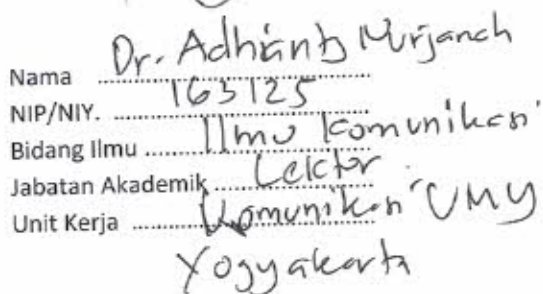 Nama ........ Dr. Adhianty Nurjanah
NIP/NIY. ........ 163125
Bidang Ilmu ........ Ilmu Komunikasi
Jabatan Akademik ........ Lektor.
Unit Kerja ........ Komunikasi UMY
Yogyakarta